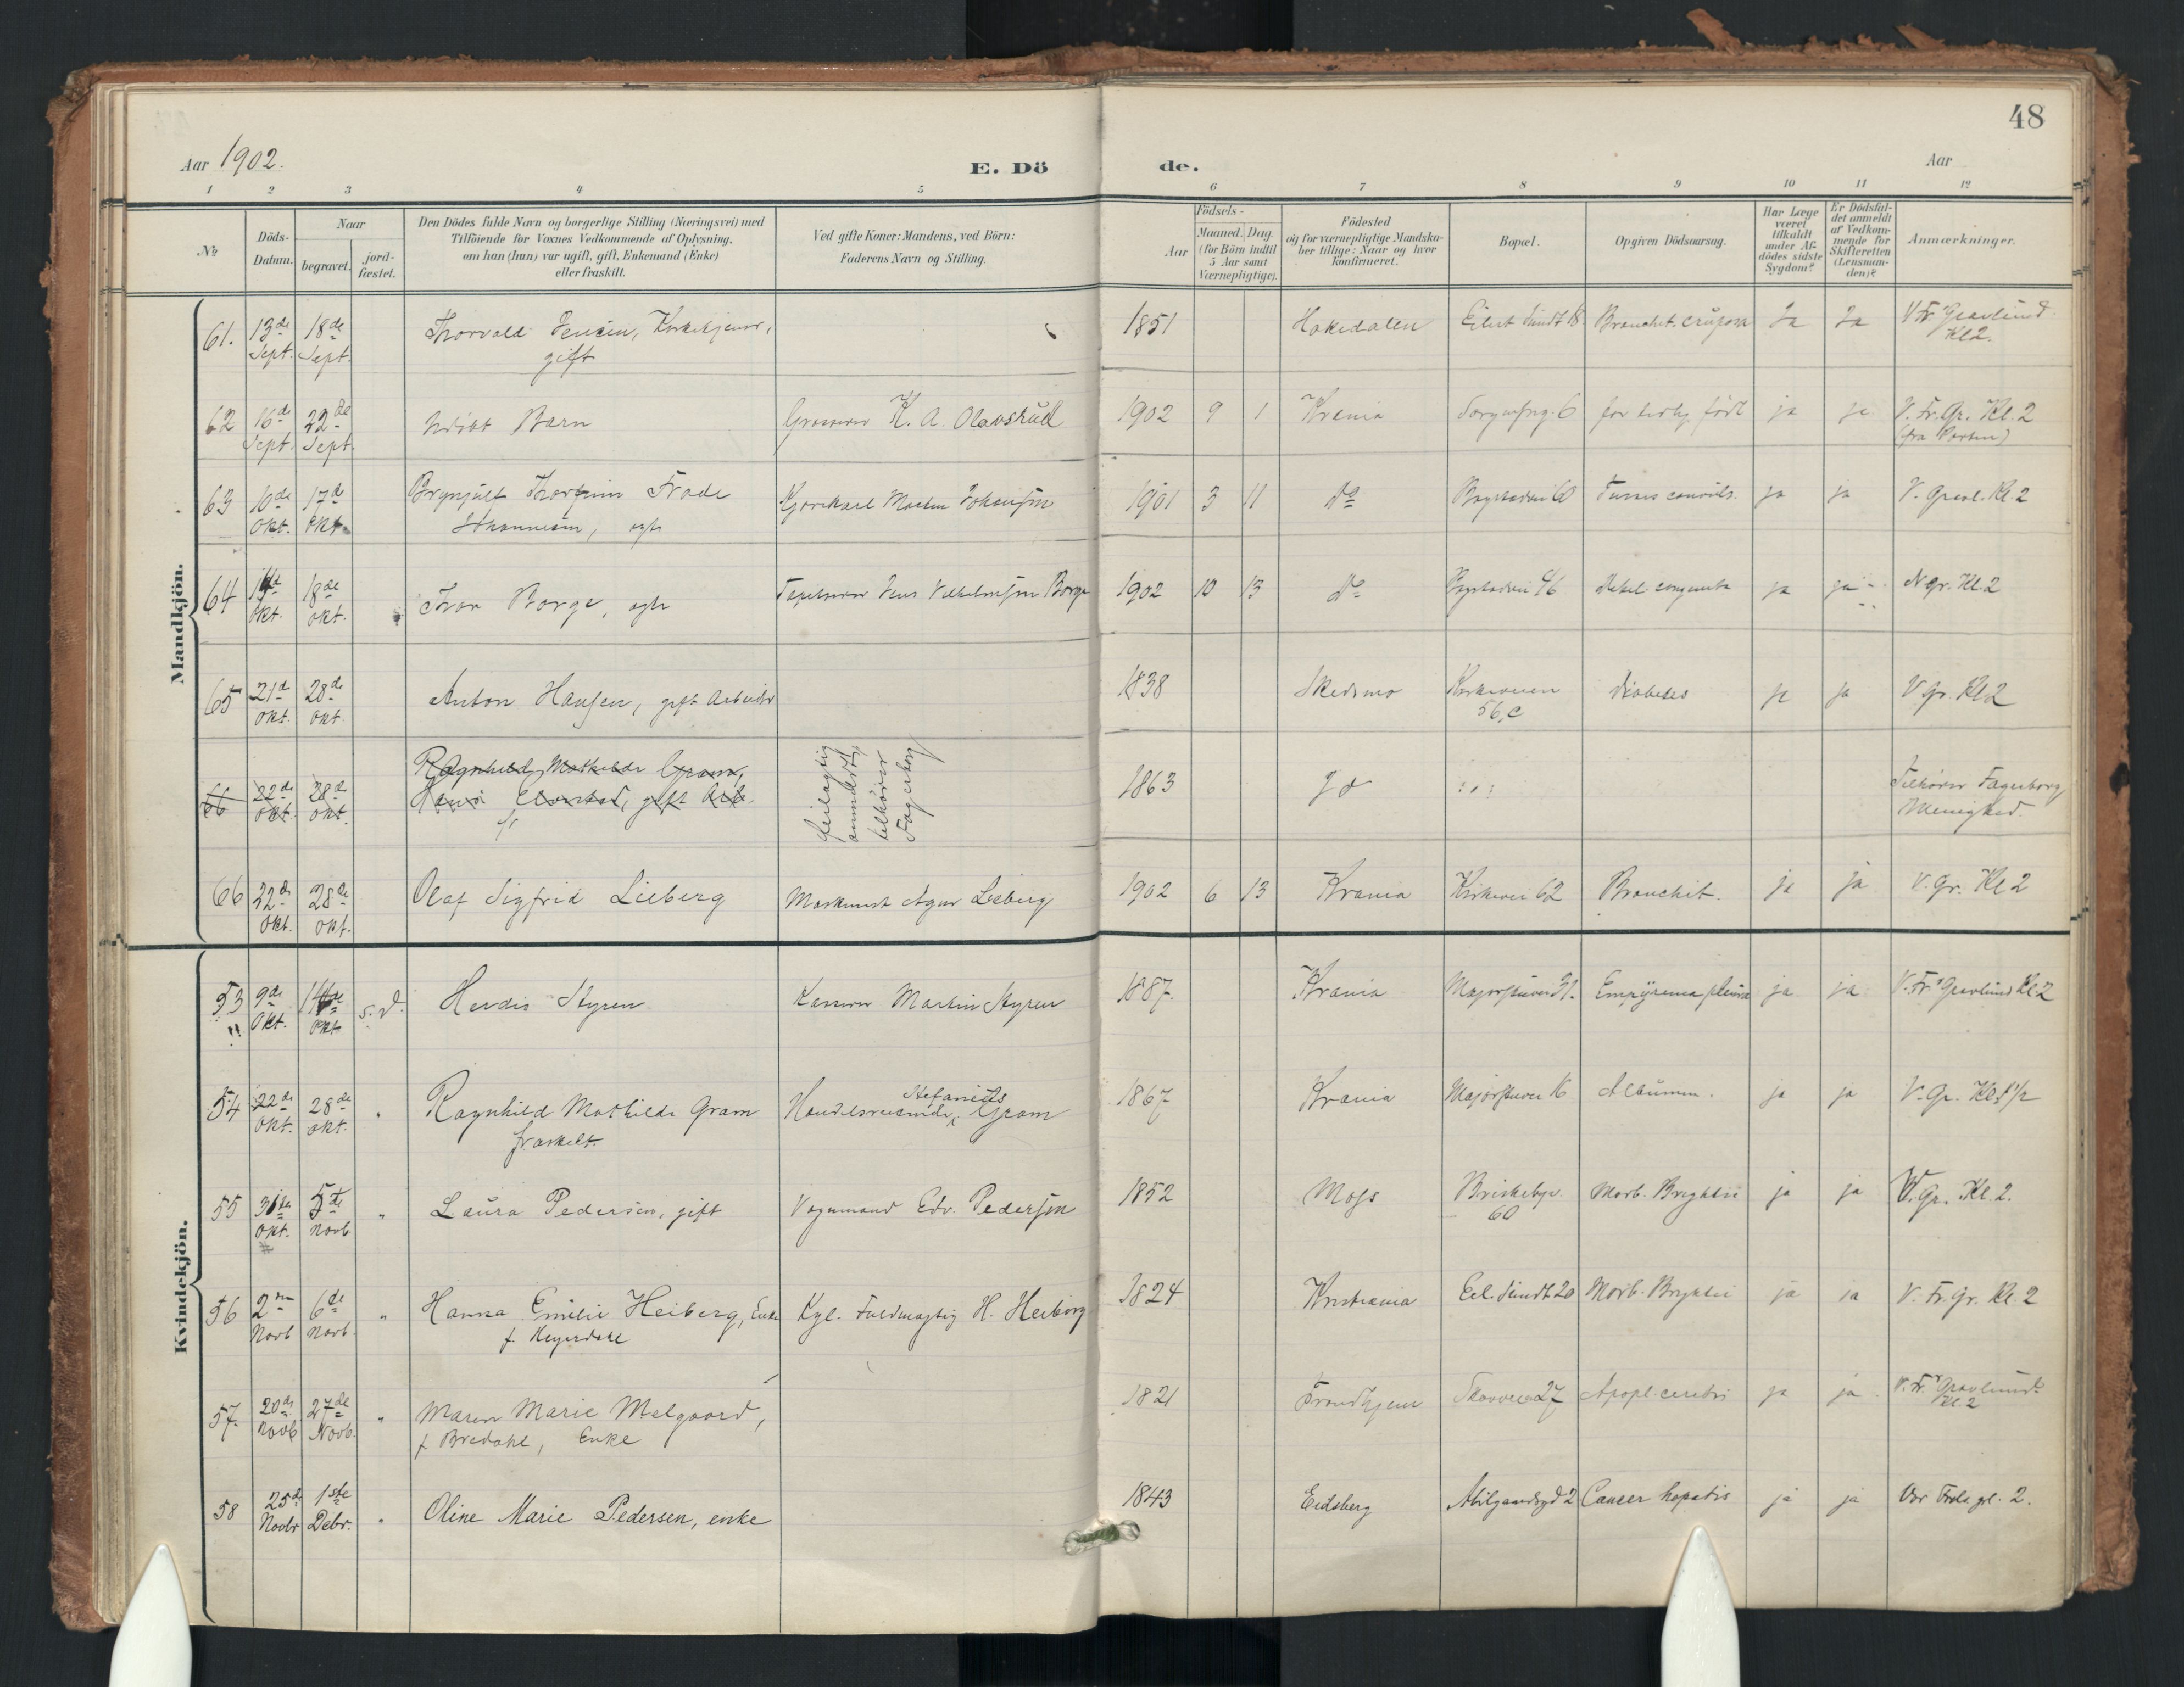 48
Aar 1902.
E. Dö
de.
Aar
1 2 3 4 5 6 7 8 9 10 11 12
№
Döds-
Datum.
Naar
begravet.
jord-
fæstet.
Den Dödes fulde Navn og borgerlige Stilling (Næringsvei) med
Tilföiende for Voxnes Vedkommende af Oplysning,
om han (hun) var ugift, gift, Enkemand (Enke)
eller fraskilt.
Ved gifte Koner: Mandens, ved Börn:
Faderens Navn og Stilling.
Födsels-
Aar
Maaned. Dag.
(for Börn indtil
5 Aar samt
Værnepligtige).
Födested
og for værnepligtige Mandska-
ber tillige: Naar og hvor
konfirmeret.
Bopæl.
Opgiven Dödsaarsag.
Har Læge
været
tilkaldt
under Af-
dödes sidste
Sygdom?
Er Dödsfal-
det anmeldt
af Vedkom-
mende for
Skifteretten
(Lensman-
den)?
Anmærkninger.
Mandkjön.
61. 13de Sept. 18de Sept.
Thorvald Jensen,
gift
1851 Hakedalen Eilert Sundt 18 Bronchit. cruposa Ja Ja V Fr Gravlund
Kl 2.
62 16de Sept. 22de Sept.
udöbt Barn
Grosserer K. A. Olavsrud
1902 9 1 Krania 6 for tidlig født ja ja V. Fr. Gr. Kl. 2
(fra Porten)
63 10de Okt. 17de Okt.
Brynjulf Thorfinn Frode
Johannesen, egte
Kjørekarl Morten Johansen
1901 3 11 do Bogstadvei 60 ja ja V. Gravl. Kl 2
64 14de Okt. 18de Okt.
Thor Borge, egte
Tapetserer Jens Vilhelmsen Borge
1902 10 13 do Bogstadvei 46 Debil. congenita ja ja N gr. Kl. 2
65 21de Okt. 28de Okt.
Anton Hansen, gift Arbeider
1838 Skedsmo Kirkeveien
56, c
Diabetes ja ja V gr. Kl 2
66 22de Okt. 28de Okt.
Ragnhild Mathilde Gram,
gift Arb.
feilagtig
anmeldt,
tilhører
Fagerborg
1863
Tilhører Fagerborg
Menighed.
66 22de Okt. 28de Okt.
Olaf Sigfrid Lieberg
Maskinist Agur Lieberg
1902 6 13 Krania Kirkevei 62 Bronchit. ja ja V. Gr. Kl 2
Kvindekjön.
53 9de Okt. 14de Okt. s. d.
Herdis Styren
Kasserer Martin Styren
1887. Krania Majorstuvei 31. Empyema pleura ja ja V. Fr. Gravlund Kl. 2
54 22de Okt. 28de Okt. "
Ragnhild Mathilde Gram
fraskilt.
Handelsreisende, Gram
1867 Krania Majorstuvei 16 Albumin. ja ja V. Gr. Kl. 1/2
55 31te Okt. 5te Novb "
Laura Pedersen, gift
Vognmand Edv. Pedersen
1852 Moss Briskebyv.
60
Morb. Brightii ja ja V. Gr. Kl. 2.
56 2den Novb 6de Novb. "
Hanna Emilie Heiberg, Enke
f. Heyerdahl
Kgl. Fuldmægtig H. Heiberg
1824 Kristiania Eil. Sundt 20 Morb. Brightii ja ja V. Fr. Gr. Kl. 2
57. 20de Novb 27de Novb. "
Maren Marie Melgaard,
f. Bredahl, Enke
1821 Trondhjem Skovveien 27 Apopl. cerebri ja ja V. Fr. Gravlund.
Kl. 2
58 25de Novbr 1ste Debr. "
Oline Marie Pedersen, enke
1843 Eidsberg Abilgaardsgd 2 Cancer hepatis ja ja Vor Frels. gr. 2.